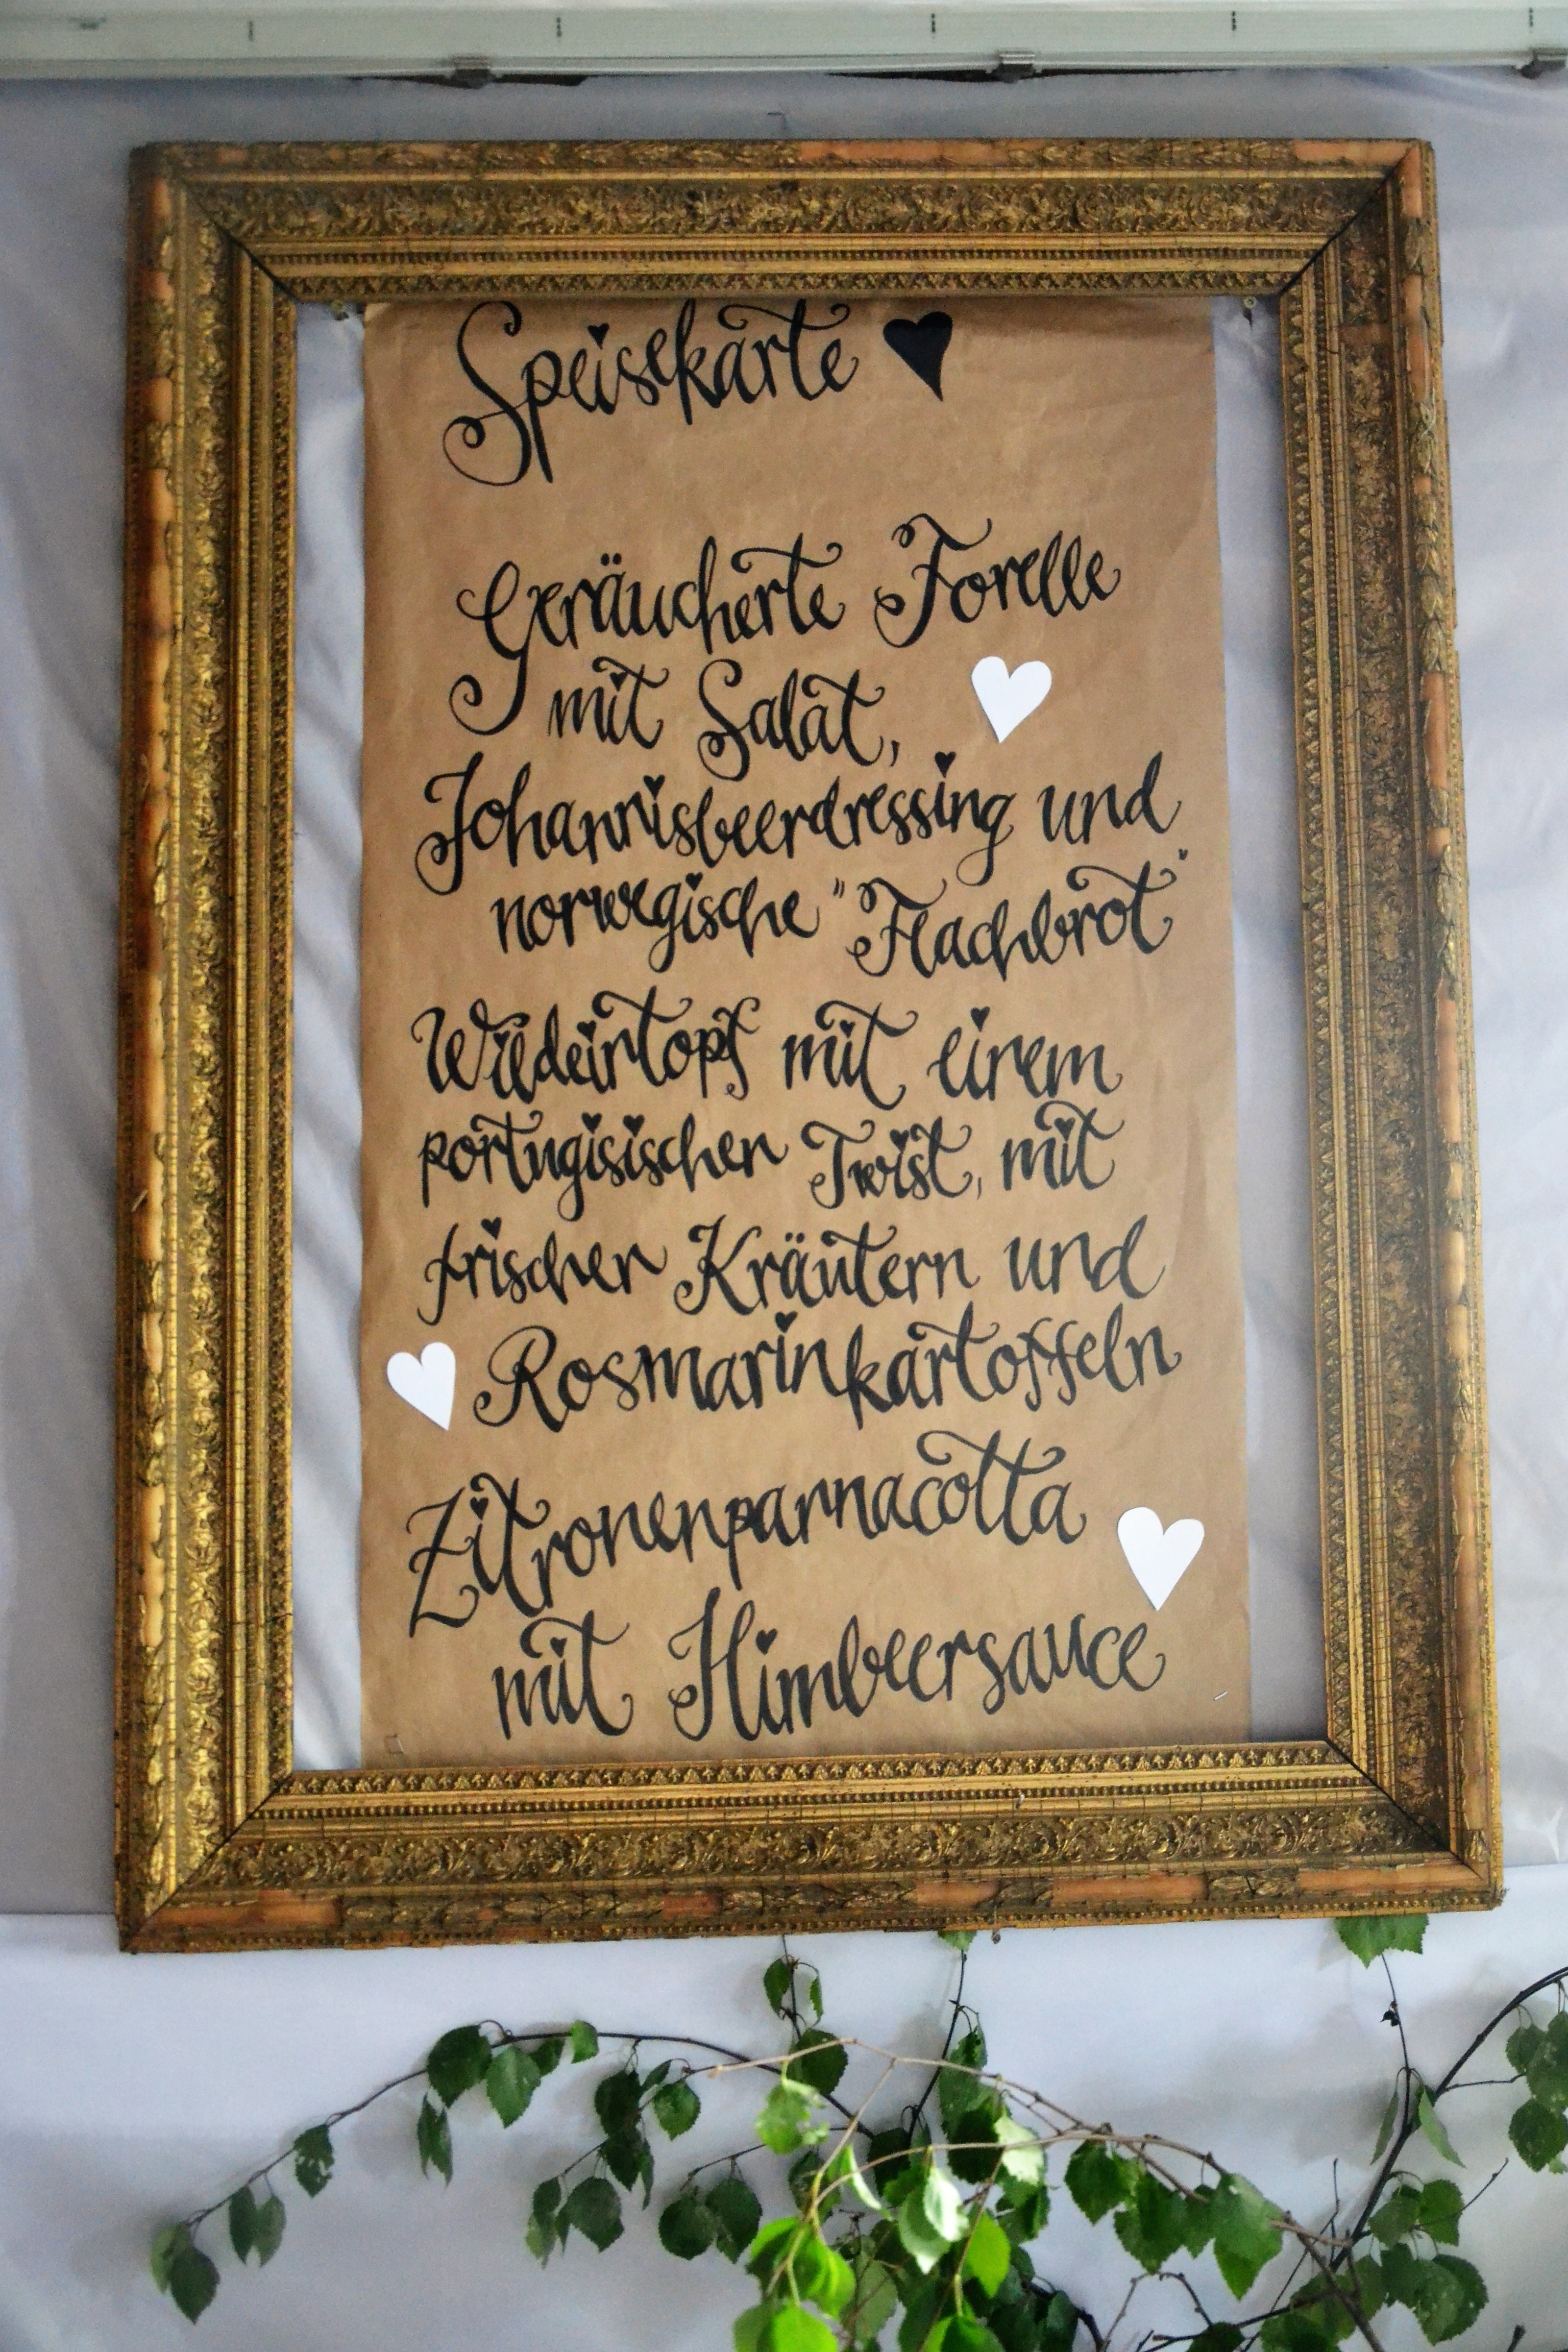 Speisekarte
Geräucherte Forelle
mit Salat,
Johannisbeerdressing und
norwegische "Flachbrot"
Wildeintopf mit einem
portugisischen Twist, mit
frischen Kräutern und
Rosmarinkartoffeln
Zitronenpannacotta
mit Himbeersauce